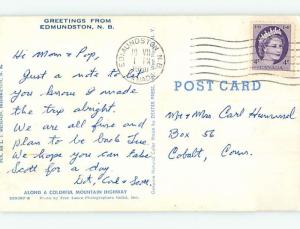 GREETINGS FROM
EDMUNDSTON, N. B.
Hi Mom & Pop,
Just a note to let
you know I made
the trip alright.
We are all fine and
plan to be back Tue.
We hope you can take
Scott for a day.
Dot, Carl & Scott.
ALONG A COLORFUL MOUNTAIN HIGHWAY
Photo by Free Lance Photographers Guild, Inc.
EDMUNDSTON, N.B.
POST CARD
Mr & Mrs Carl Hummel
Box 56
Cobalt, Conn.